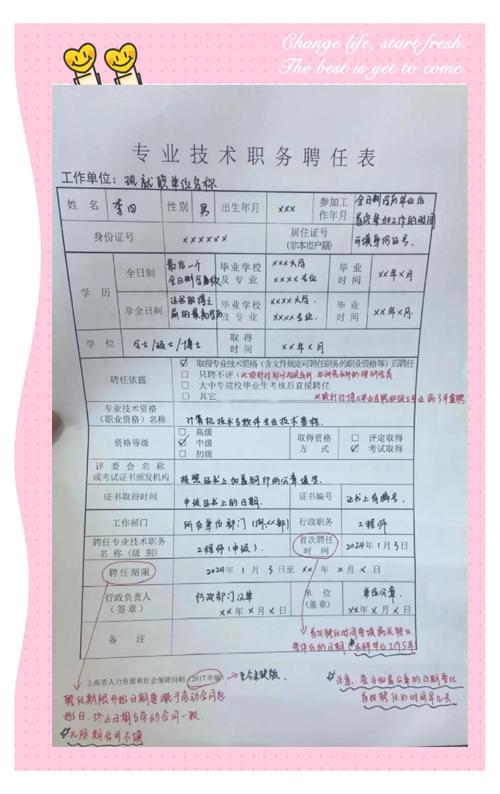 Change life, start fresh.
The best is yet to come.
专业技术职务聘任表
工作单位：现就职单位名称
姓名 李四 性别 男 出生年月 xxx 参加工作年月 全日制学历毕业后首次参加工作的时间
身份证号 xxxxxx 居住证号（非本市户籍） 可填身份证号。
学历 全日制 最后一个全日制 毕业学校及专业 xxx大学 xxxx专业 毕业时间 xx年x月
非全日制 证书取得之前的最高学历 毕业学校及专业 xxx大学. xxxx专业. 毕业时间 xx年x月
学位 学士/硕士/博士 取得时间 xx年x月
聘任依据
☑ 取得专业技术资格（含文件规定可聘任职务的职业资格等）后聘任
□ 只聘不评（
□ 大中专院校毕业生考核后直接聘任
□ 其它
专业技术资格（职业资格）名称 计算机技术与软件专业技术资格.
资格等级 □ 高级 ☑ 中级 □ 初级 取得资格方式 □ 评定取得 ☑ 考试取得
评委会名称或考试证书颁发机构 按照证书上加盖钢印的公章填写.
证书取得时间 中级证书上的日期. 证书编号 证书上有编号.
工作部门 所在单位部门（例:xx部） 行政职务 工程师
聘任专业技术职务名称（级别） 工程师（中级）. 首次聘任时间 2024年1月3日
聘任期限 2024年1月3日至xx年x月x日
行政负责人（签章） 行政部门公章 xx年x月x日 单位（盖章） 单位公章. xx年x月x日
备注
首次聘任时间
上海市人力资源和社会保障局制（2017年版）
聘任期限开始日期
始日. 终止日期与劳动合同一致.
*无限期合同不填
*注意. 最后加盖公章的日期要比首次聘任的时间